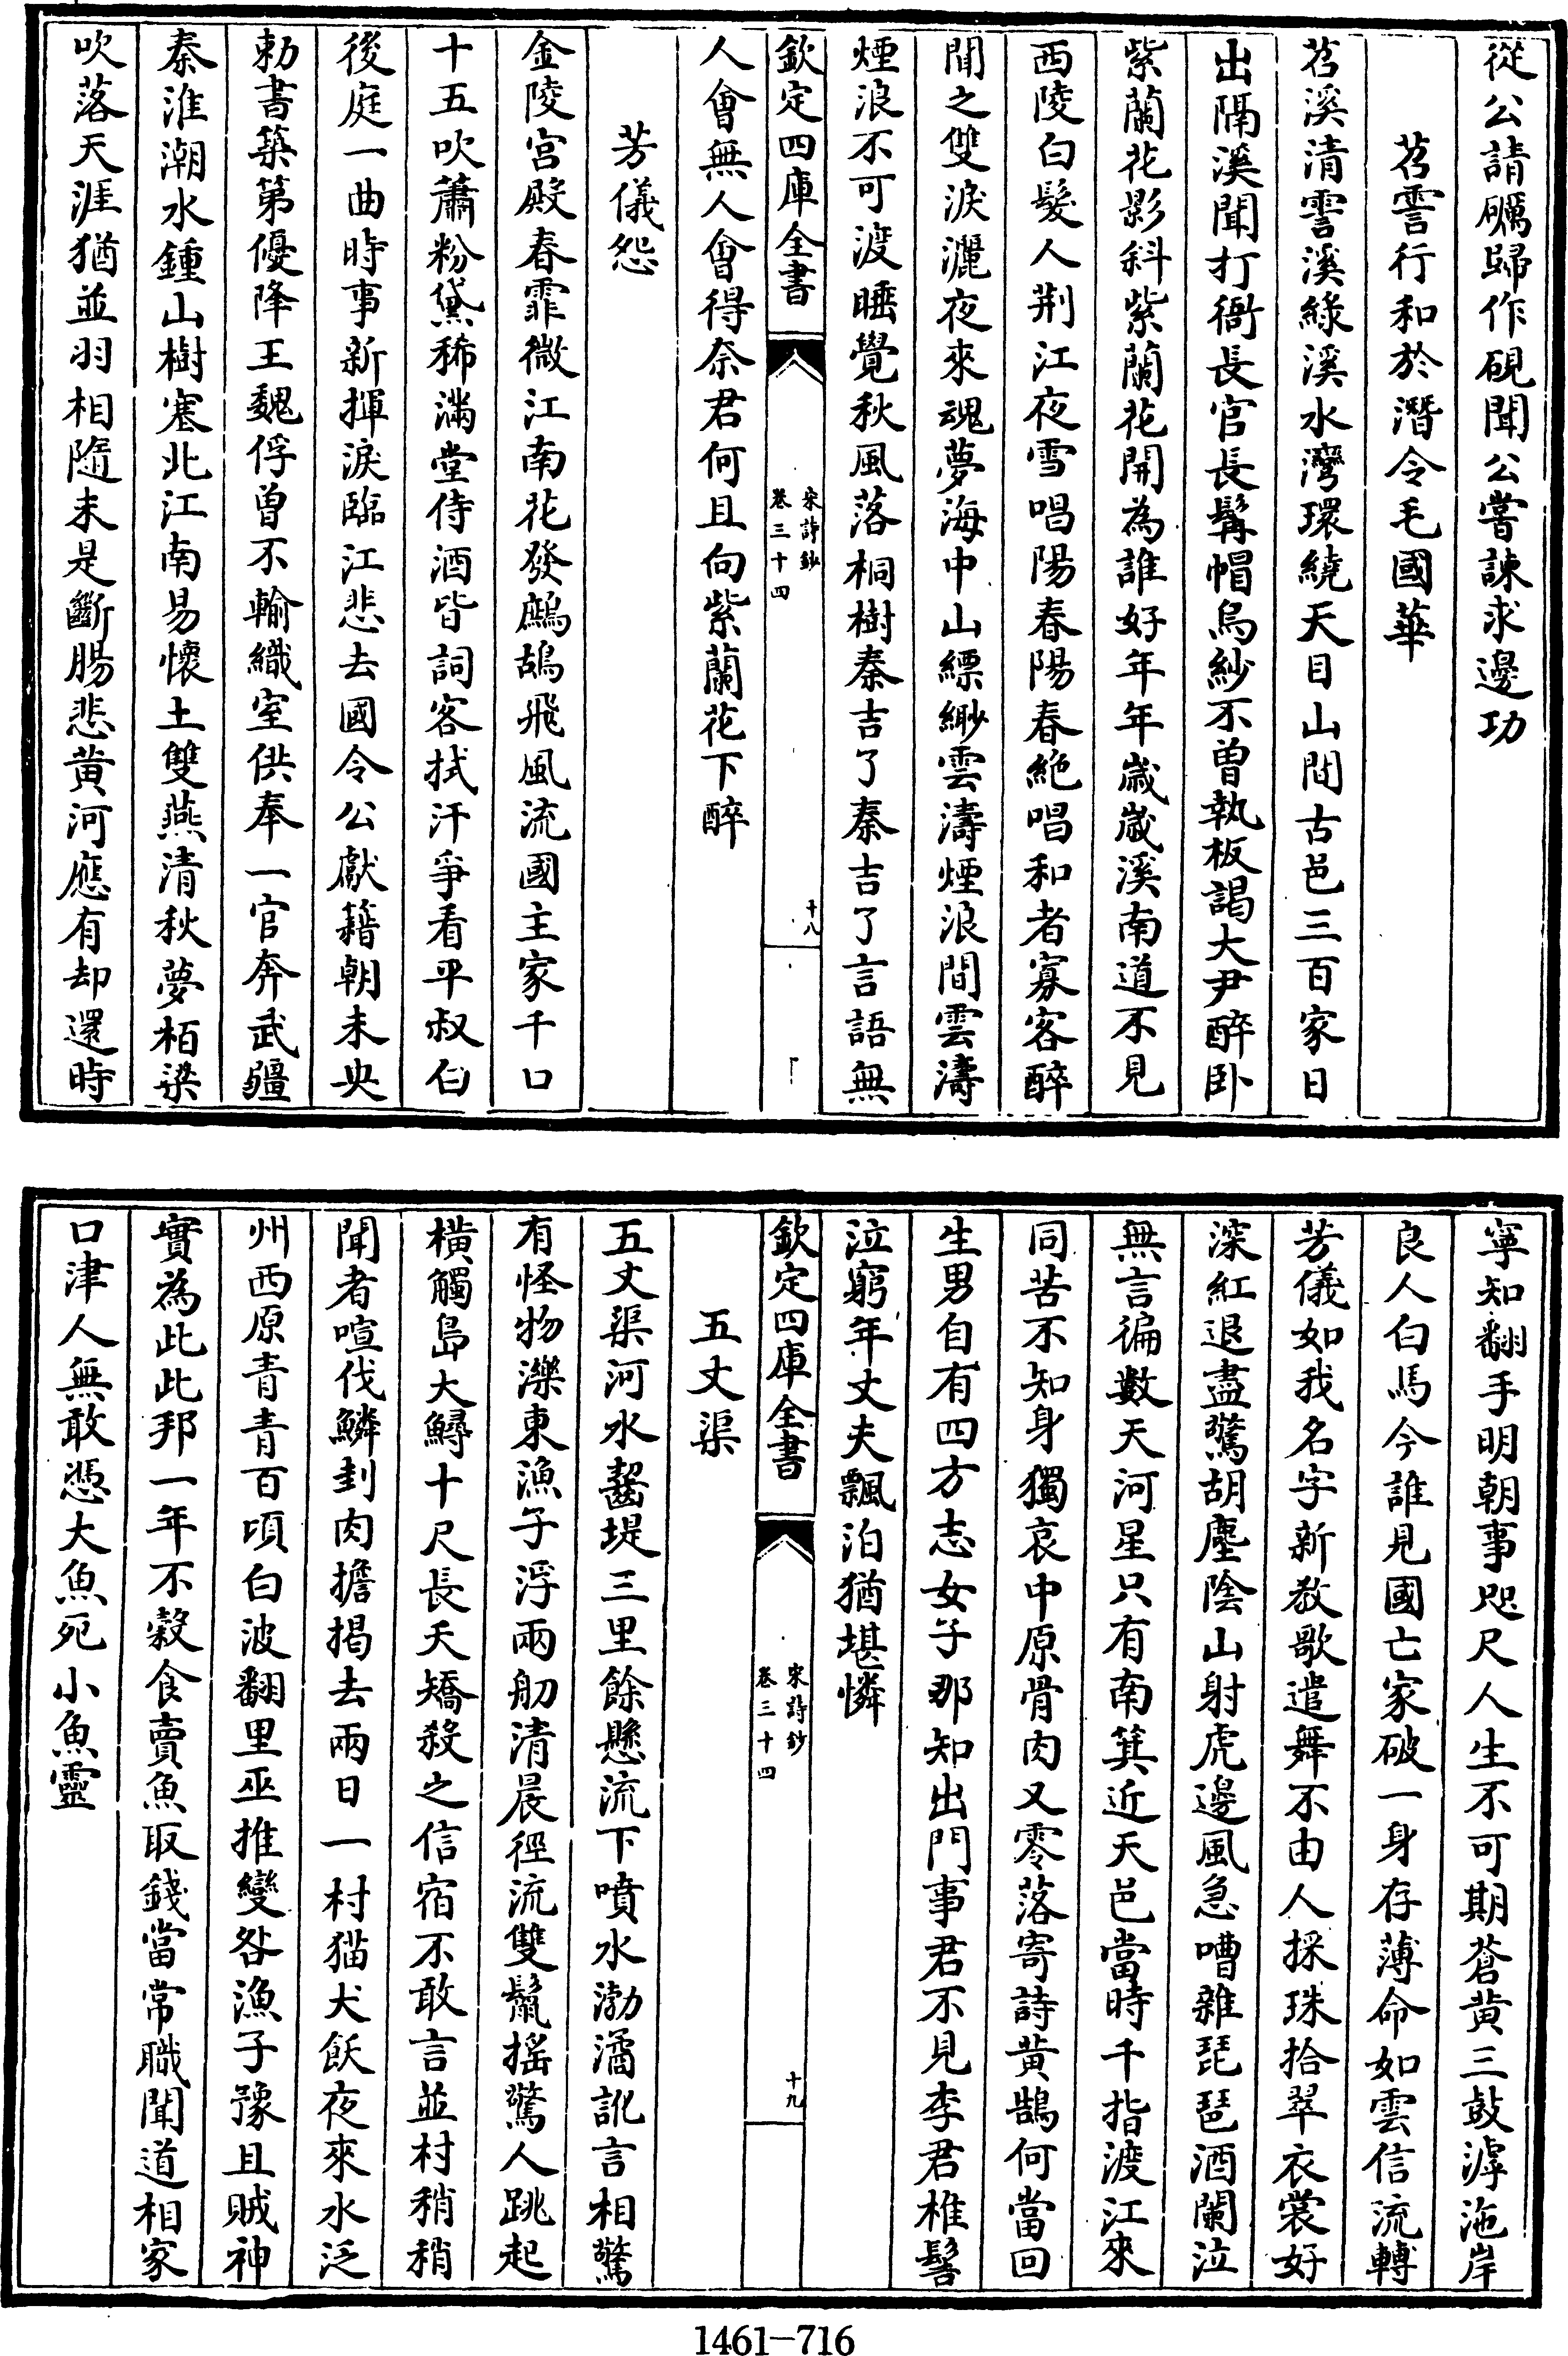 從公請礪歸作硯聞公嘗諫求邊功
苕霅行和於潛令毛國華
苕溪清霅溪綠溪水灣環繞天目山間古邑三百家日
出隔溪聞打衙長官長髯帽烏紗不曾執板謁大尹醉卧
紫蘭花影斜紫蘭花開為誰好年年歲歲溪南道不見
西陵白髮人荆江夜雪唱陽春陽春絶唱和者寡客醉
聞之雙淚灑夜來魂夢海中山縹緲雲濤煙浪間雲濤
煙浪不可渡睡覺秋風落桐樹秦吉了秦吉了言語無
欽定四庫全書
宋詩鈔
卷三十四
十八
人會無人會得奈君何且向紫蘭花下醉
芳儀怨
金陵宮殿春霏微江南花發鷓鴣飛風流國主家千口
十五吹簫粉黛稀滿堂侍酒皆詞客拭汗爭看平叔白
後庭一曲時事新揮淚臨江悲去國令公獻籍朝未央
勅書築第優降王魏俘曾不輸織室供奉一官奔武疆
秦淮潮水鍾山樹塞北江南易懷土雙燕清秋夢栢梁
吹落天涯猶並羽相隨未是斷腸悲黄河應有却還時
寧知翻手明朝事咫尺人生不可期蒼黄三鼓滹沱岸
良人白馬今誰見國亡家破一身存薄命如雲信流轉
芳儀如我名字新教歌遣舞不由人採珠拾翠衣裳好
深紅退盡驚胡塵陰山射虎邊風急嘈雜琵琶酒闌泣
無言徧數天河星只有南箕近天邑當時千指渡江來
同苦不知身獨哀中原骨肉又零落寄詩黄鵠何當回
生男自有四方志女子那知出門事君不見李君椎髻
泣窮年丈夫飄泊猶堪憐
欽定四庫全書
宋詩鈔
卷三十四
十九
五丈渠
五丈渠河水齧堤三里餘懸流下噴水渤潏訛言相驚
有怪物濼東漁子浮兩舠清晨徑流雙鬛摇驚人跳起
橫觸島大鱘十尺長夭矯殺之信宿不敢言並村稍稍
聞者喧伐鱗刲肉擔揭去兩日一村猫犬飫夜來水泛
州西原青青百頃白波翻里巫推變咎漁子豫且賊神
實為此此邦一年不穀食賣魚取錢當常職聞道相家
口津人無敢憑大魚死小魚靈
1461-716